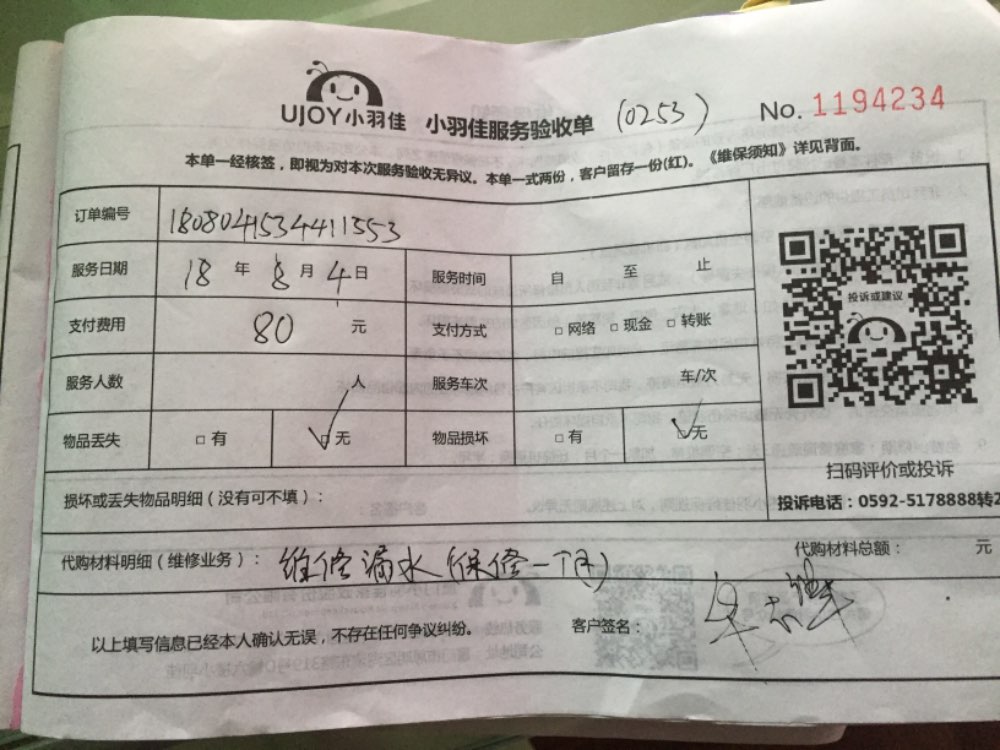 UJOY小羽佳 小羽佳服务验收单 (0253) No. 1194234
本单一经核签，即视为对本次服务验收无异议。本单一式两份，客户留存一份(红)。《维保须知》详见背面。
订单编号 1808041534411553
服务日期 18 年 8 月 4 日 服务时间 自 至 止
支付费用 80 元 支付方式 □网络 □现金 □转账
服务人数 人 服务车次 车/次
物品丢失 □有 □无 物品损坏 □有 □无
投诉或建议
扫码评价或投诉
投诉电话：0592-5178888转2
损坏或丢失物品明细（没有可不填）：
代购材料明细（维修业务）： 维修漏水(保修一个月) 代购材料总额： 元
以上填写信息已经本人确认无误，不存在任何争议纠纷。 客户签名：